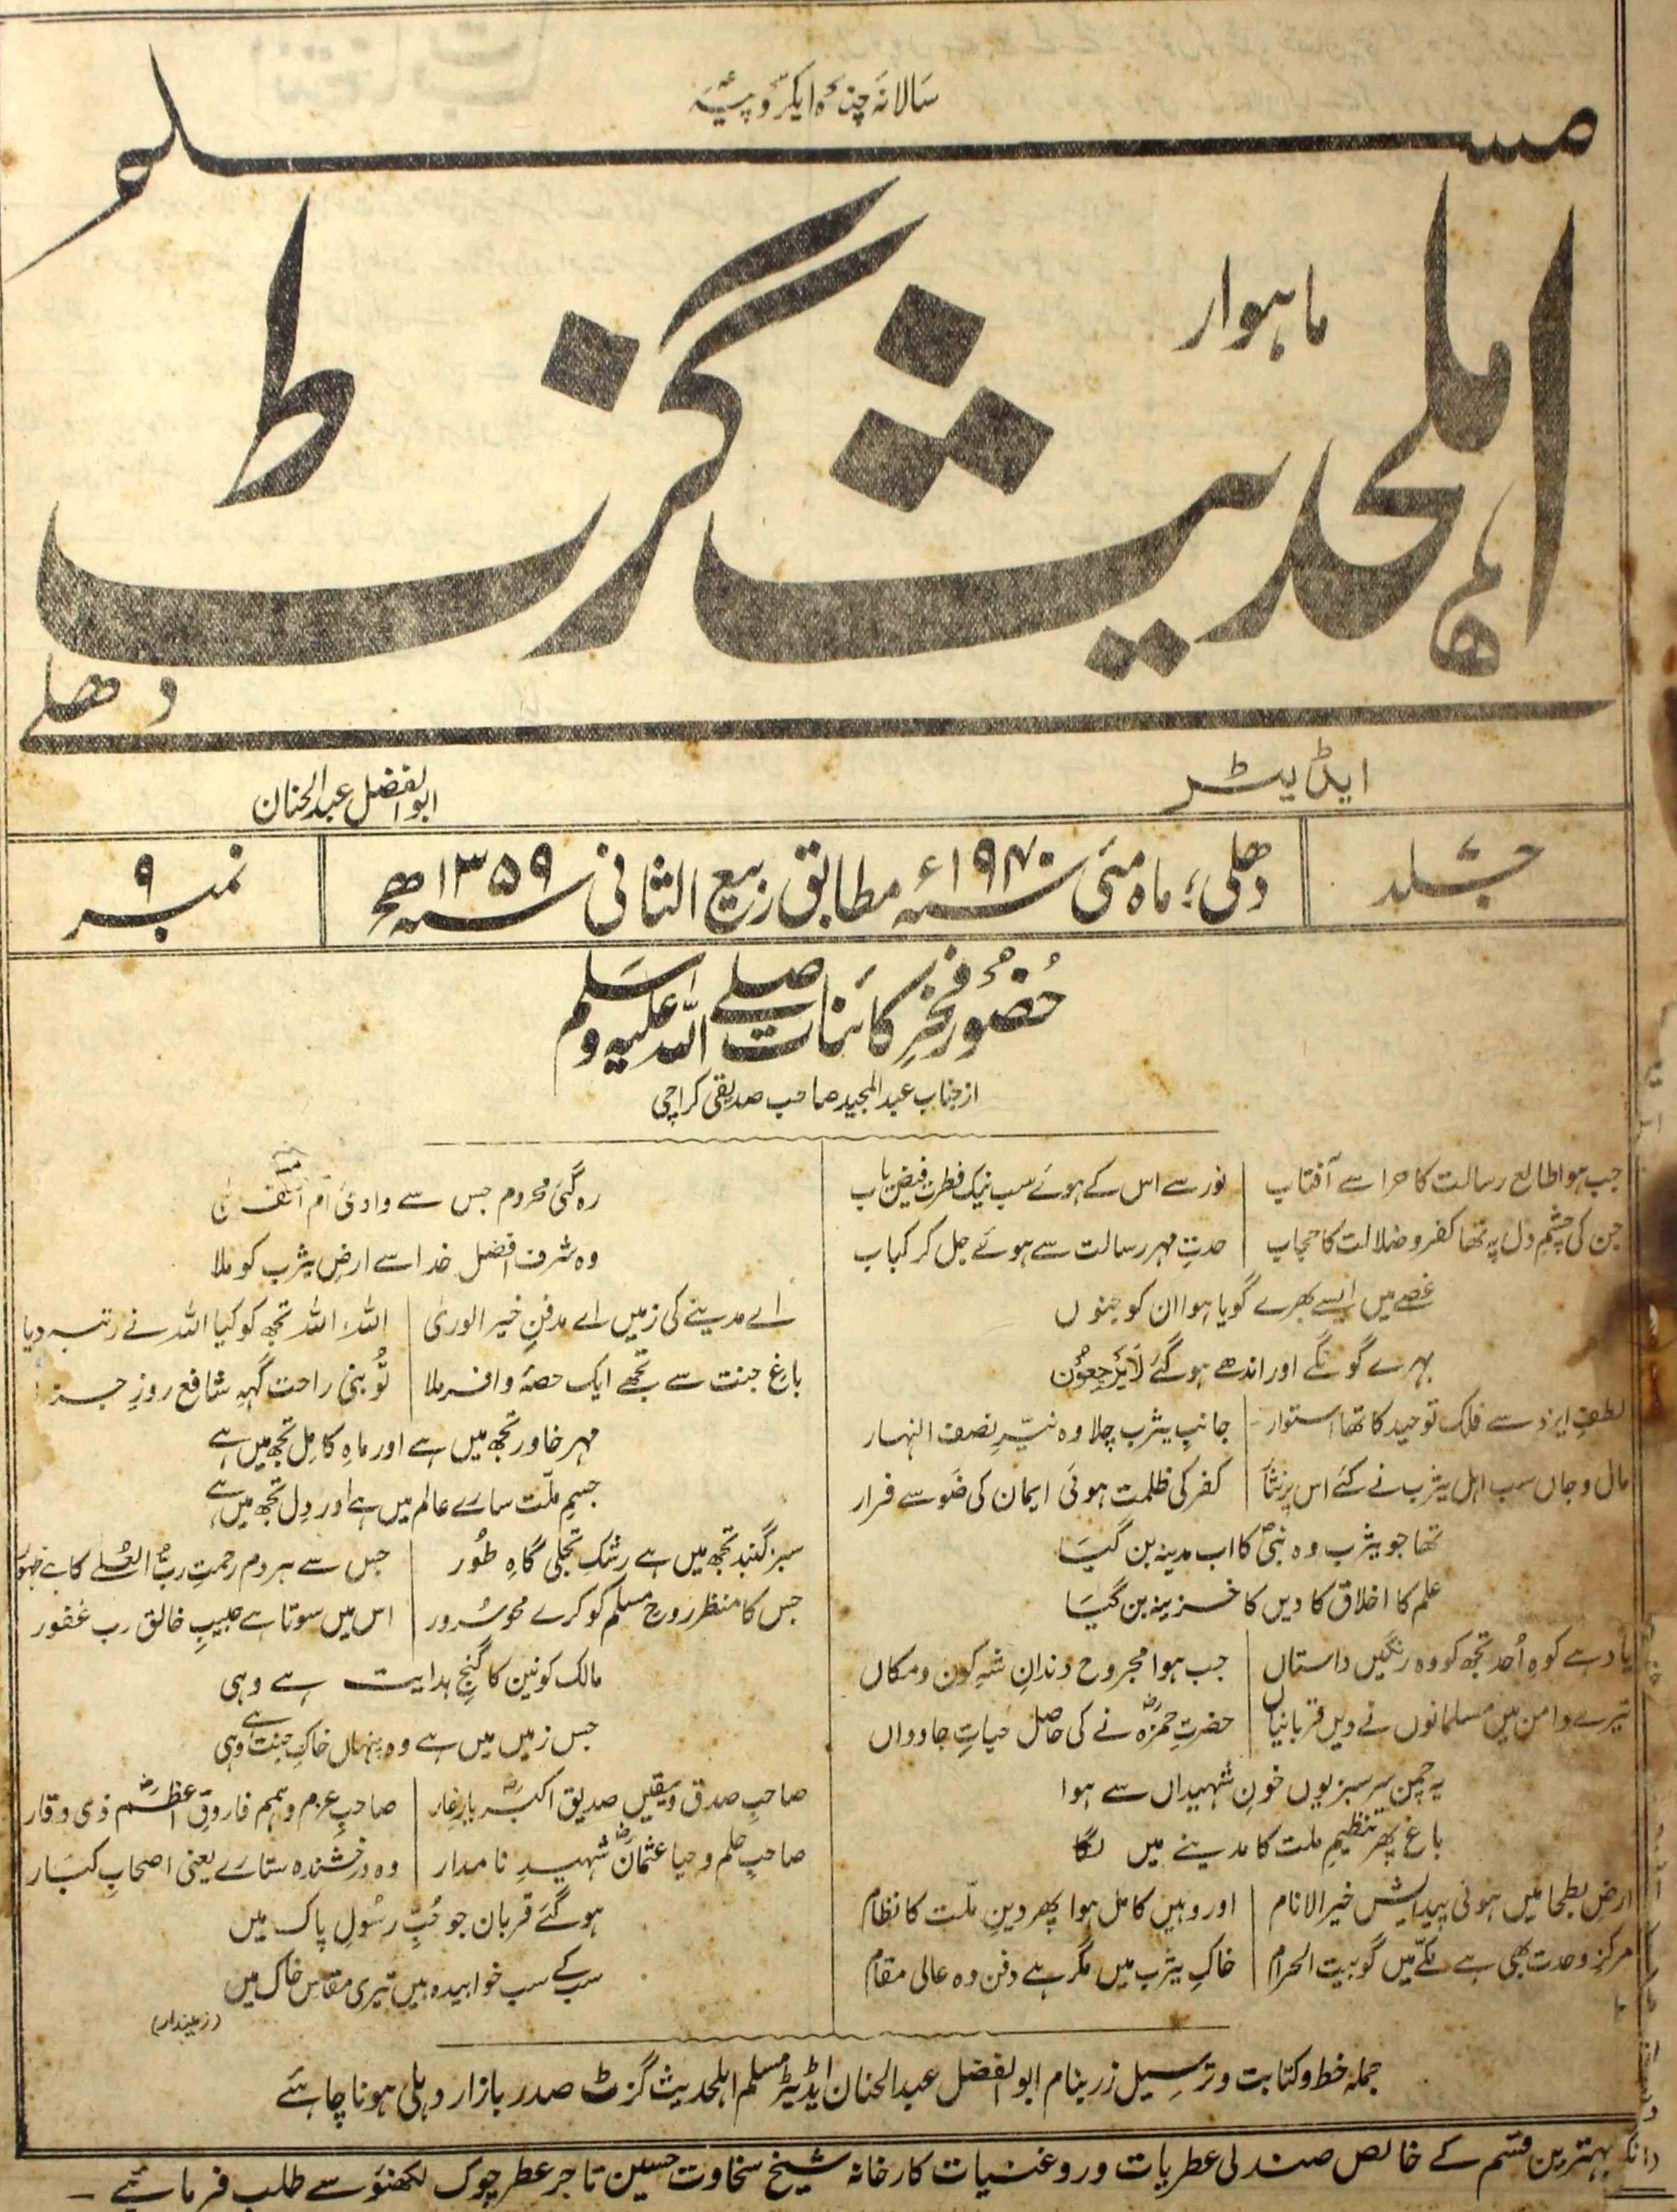 سالانہ چندہ ایکروپیہ
مسلم
اہلحدیث گزٹ
ماہوار
دھلی
ایڈیٹر
ابوالفضل عبدالحنان
جلد
دھلی؛ ماہ مئی سنہ ۱۹۴۰ء مطابق ربیع الثانی سنہ ۱۳۵۹ھج
نمبر ۹
حضور فخرِ کائنات صلے اللہ علیہ وسلم
از جناب عبدالمجید صاحب صدیقی کراچی
جب ہوا طالع رسالت کا حرا سے آفتاب
نور سے اس کے ہوئے سب نیک فطرت فیض یاب
جن کی چشمِ دل پہ تھا کفر و ضلالت کا حجاب
حدتِ مہر رسالت سے ہوئے جل کر کباب
غصے میں ایسے بھرے گویا ہوا ان کو جنوں
بہرے گونگے اور اندھے ہوگئے لَایَرْجِعُوْن
لطفِ ایزد سے فلک توحید کا تھا استوار
جانبِ یثرب چلا وہ نیّرِ نصف النہار
مال و جاں سب اہل یثرب نے کئے اس پر نثار
کفر کی ظلمت ہوئی ایمان کی ضَو سے فرار
تھا جو یثرب وہ نبیؐ کا اب مدینہ بن گیَا
علم کا اخلاق کا دیں کا خزینہ بن گیَا
یاد ہے کوہِ اُحد تجھ کو وہ رنگیں داستاں
جب ہوا مجروح دندانِ شہِ کون و مکاں
تیرے دامن میں مسلمانوں نے دیں قربانیاں
حضرتِ حمزہؓ نے کی حاصل حیاتِ جاوداں
یہ چمن سرسبز یوں خونِ شہیداں سے ہوا
باغ پھر تنظیمِ ملت کا مدینے میں لگا
ارضِ بطحا میں ہوئی پیدائش خیر الانام
اور وہیں کامل ہوا پھر دینِ ملّت کا نظام
مرکزِ وحدت بھی ہے مکّے میں گو بیت الحرام
خاکِ یثرب میں مگر ہے دفن وہ عالی مقام
رہ گئی محروم جس سے وادیٔ ام القریٰ
وہ شرف افضلِ خدا سے ارضِ یثرب کو ملا
اے مدینے کی زمیں اے مدفنِ خیر الوریٰ
اللہ اللہ تجھ کو کیا اللہ نے رتبہ دیا
باغِ جنت سے تجھے ایک حصۂ وافر ملا
تُو بنی راحت گہہِ شافع روزِ جزا
مہرِ خاور تجھ میں ہے اور ماہِ کامل تجھ میں ہے
جسمِ ملّت سارے عالم میں ہے اور دِل تجھ میں ہے
سبز گنبد تجھ میں ہے رشکِ تجلی گاہِ طُور
جس سے ہر دم رحمتِ ربُّ العُلے کا ہے ظہور
جس کا منظر روحِ مسلم کو کرے محوِ سُرور
اس میں سوتا ہے حبیبِ خالق رب غفور
مالک کونین کا گنجِ ہدایت ہے وہی
جس زمیں میں ہے وہ پنہاں خاکِ جنت ہے وہی
صاحبِ صدق و یقیں صدیق اکبرؓ یارِ غار
صاحبِ عزم و ہمم فاروقِ اعظمؓ ذی وقار
صاحبِ حلم و حیا عثمانؓ شہیدِ نامدار
وہ درخشندہ ستارے یعنی اصحابِ کبَار
ہوگئے قربان جو حُبِّ رسُولِ پاک میں
سب کے سب خوابیدہ ہیں تیری مقدس خاک میں
(زمیندار)
جملہ خط و کتابت و ترسیل زر بنام ابوالفضل عبدالحنان ایڈیٹر مسلم اہلحدیث گزٹ صدر بازار دہلی ہونا چاہئے
بہترین قسم کے خالص صندلی عطریات و روغنیات کارخانہ شیخ سخاوت حسین تاجر عطر چوک لکھنؤ سے طلب فرمائیے ۔